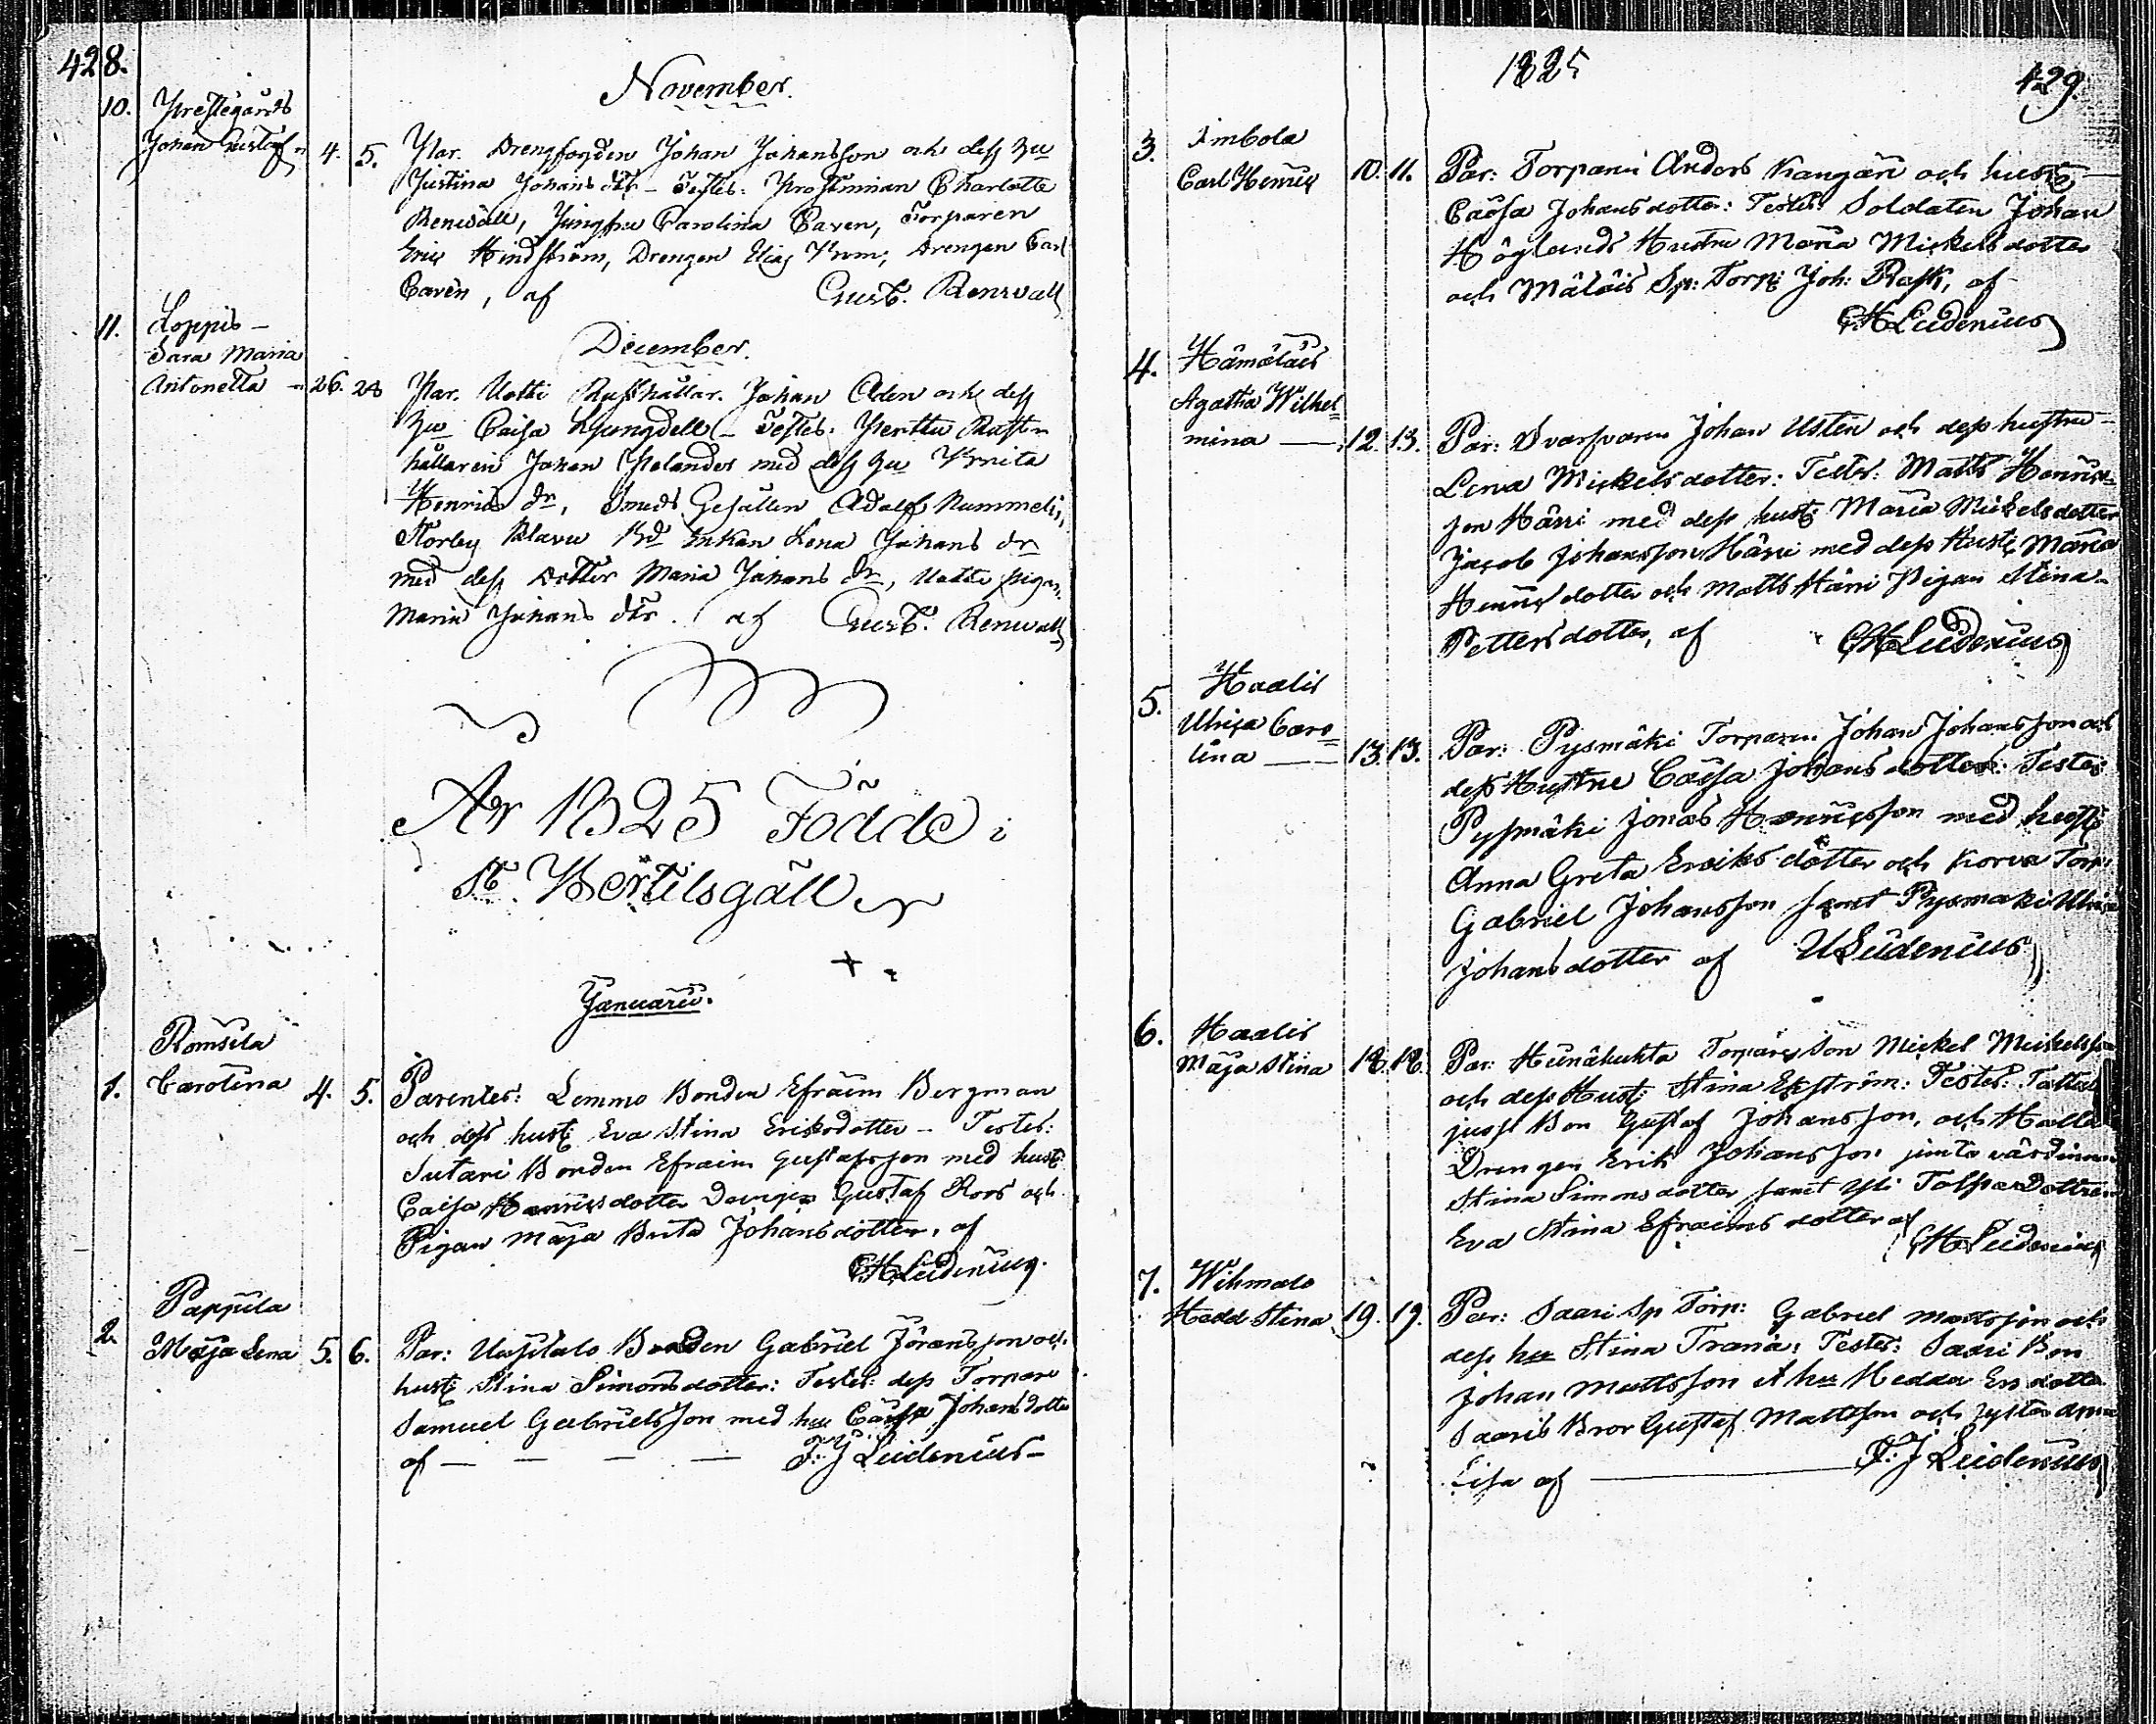 428.
November.
10. Prestegårds
Johan Gustaf 4. 5. Par. Drengfogden Johan Johansson och dess hu
Justina Johans dtr – Testes: Prostinnan Charlotta
Renwall, Jungfru Carolina Caven, Torparen
Eric Hindström, Drengen Elias Krom, Drengen Carl
Cavén, af Gust. Renvall
11. Loppis –
December.
Sara Maria
Antonetta – 26. 28 Par. Uotti Rusthållar. Johan Aden och dess
hu Caisa Ljungdell – Testes: Perttu Rust
hållaren Johan Helander med dess hu Brita
Henrics dr, Smeds Gesällen Adolf Nummelin,
Storby Klavu Enkan Lena Johans dr
med dess dotter Maria Johans dr, Uotti pigan
Maria Johans dtr. af Gust. Renvall
År 1825 Födde i
St. Bertilsgäll
Januarii.
Romsila
1. Carolina 4. 5. Parentes: Lemmo Bonden Efraim Bergman
och dess hust: Eva Stina Eriksdotter – Testes:
Sutari Bonden Efraim Gustafsson med hust:
Caisa Henricsdotter Drengen Gustaf Roos och
Pigan Maja Brita Johansdotter, af
CH Leidenius.
Pappila
2. Maja Lena 5. 6. Par: Uusitalo Bonden Gabriel Jöransson och
hust: Stina Simonsdotter: Testes: dess Torpare
Samuel Gabrielsson med hu Caisa Johansdotter
af — — — — F: J Leidenius –
1825
429.
3. Imbola
Carl Henric 10. 11. Par: Torparen Anders Kangari och hustr:
Caisa Johansdotter: Testes: Soldaten Johan
Höglunds Hustru Maria Mickelsdotter
och Mäläis Sp: Torp: Joh: Rask, af
CH Leidenius
4. Hämäläis
Agatha Wilhel=
mina — 12. 13. Par: Svarfvaren Johan Usten och dess hustru
Lena Mickelsdotter: Testes: Matts Henrics=
son Härri med dess hust: Maria Mickelsdotter
Jacob Johansson Härri med dess Hust: Maria
Henricsdotter och Matts Härri Pigan Stina
Pettersdotter, af CH Leidenius
5. Haalis
Ulrica Caro=
lina —— 13. 13. Par: Pysmäki Torparen Johan Johansson och
dess Hustru Caisa Johansdotter: Testes:
Pysmäki Jonas Henricsson med hust:
Anna Greta Eriksdotter och Korva Torp:
Gabriel Johansson samt Pysmäki Ulrica
Johansdotter af Leidenius
6. Haalis
Maja Stina 18. 18. Par: Torpare Son Mickel Mickelsson
och dess Hust: Stina Ekström: Testes:
Bon Gustaf Johansson, och
Drengen Erik Johansson jemte värdinnan
Stina Simonsdotter samt Yli dottren
Eva Stina Efraimsdotter af CH Leidenius
7. Wihmalo
Hedd Stina 19. 19. Par: Saari Sp Torp: Gabriel Mattsson och
dess hu Stina Trana: Testes: Saari Bon
Johan Mattsson et hu Hedda Ersdotter
Saaris Bror Gustaf Mattsson och syster Anna
Lisa af —— F: J Leidenius